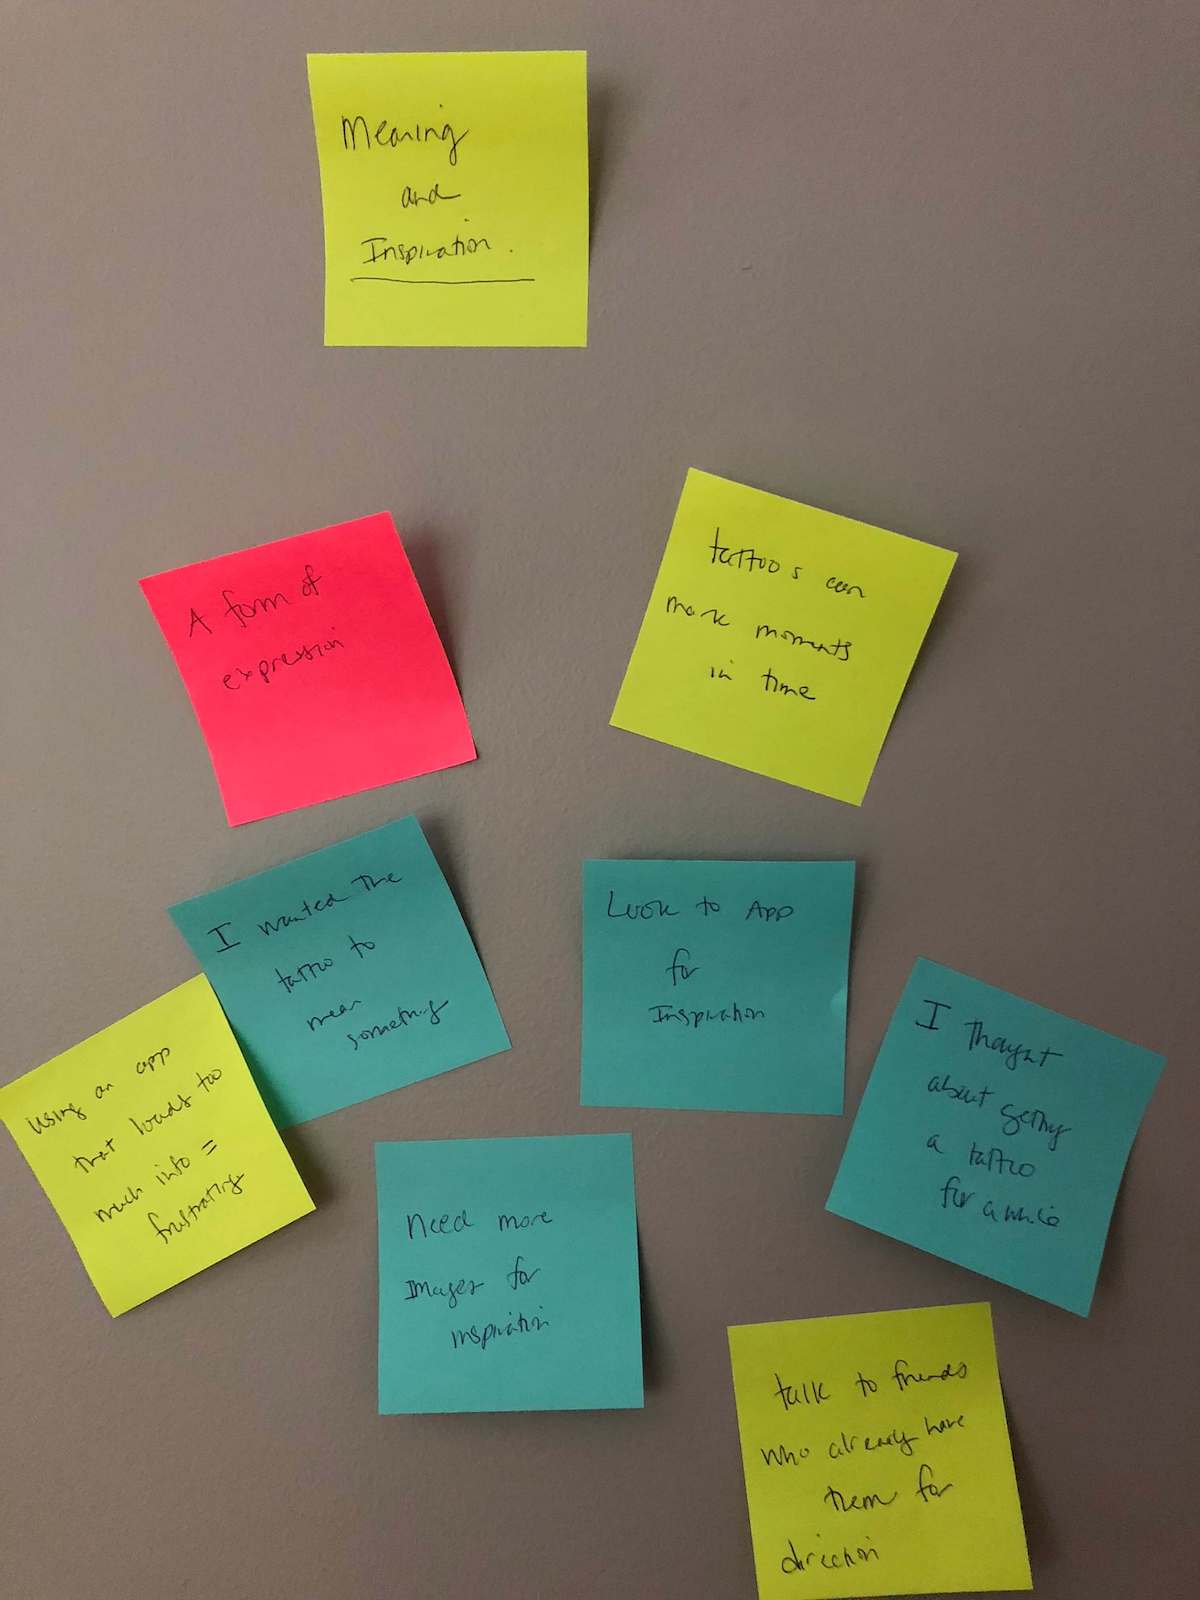 Meaning
and
Inspiration.
A form of
expression
tattoos can
mark moments
in time
I wanted the
tattoo to
mean
something
Look to App
for
Inspiration
Using an app
that loads too
much info =
frustrating
I thought
about getting
a tattoo
for a while
Need more
Images for
inspiration
talk to friends
who already have
them for
direction